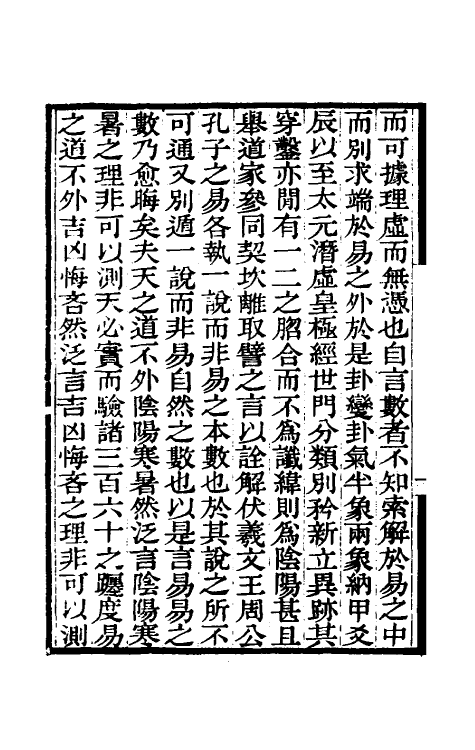 而可據理虛而無憑也自言數者不知索解於易之中
而別求端於易之外於是卦變卦氣半象兩象納甲爻
辰以至太元潛虛皇極經世門分類別矜新立異跡其
穿鑿亦閒有一二之脗合而不為讖緯則為陰陽甚且
舉道家參同契坎離取譬之言以詮解伏羲文王周公
孔子之易各執一說而非易之本數也於其說之所不
可通又別遁一說而非易自然之數也以是言易易之
數乃愈晦矣夫天之道不外陰陽寒暑然泛言陰陽寒
暑之理非可以測天必實而驗諸三百六十之躔度易
之道不外吉凶悔吝然泛言吉凶悔吝之理非可以測